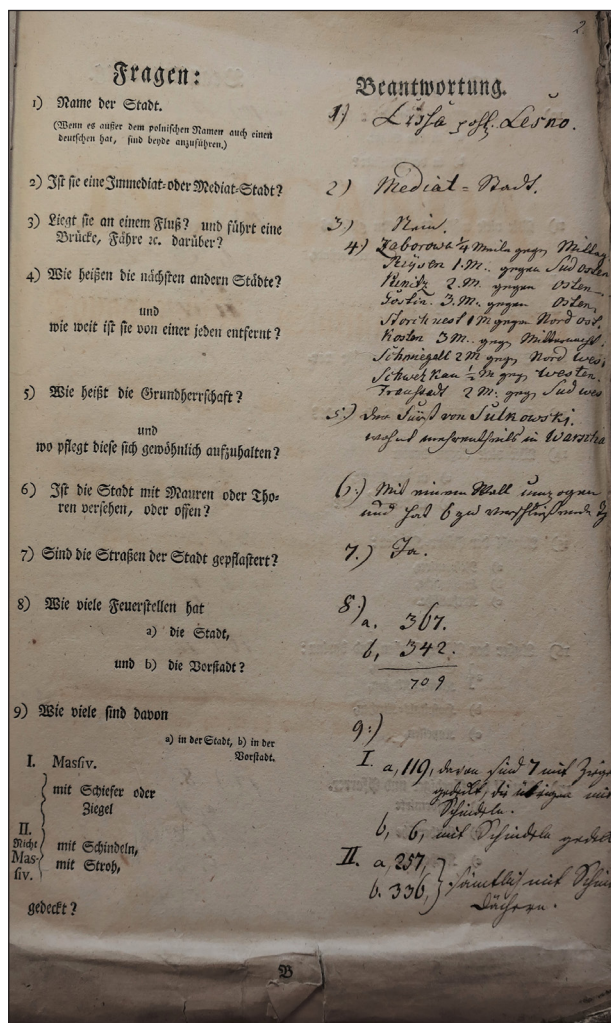 2.
Fragen:
1) Name der Stadt.
(Wenn es außer dem polnischen Namen auch einen
deutschen hat, sind beyde anzuführen.)
2) Ist sie eine Immediat- oder Mediat-Stadt?
3) Liegt sie an einem Fluß? und führt eine
Brücke, Fähre ꝛc. darüber?
4) Wie heißen die nächsten andern Städte?
und
wie weit ist sie von einer jeden entfernt?
5) Wie heißt die Grundherrschaft?
und
wo pflegt diese sich gewöhnlich aufzuhalten?
6) Ist die Stadt mit Mauren oder Tho-
ren versehen, oder offen?
7) Sind die Straßen der Stadt gepflastert?
8) Wie viele Feuerstellen hat
a) die Stadt,
und b) die Vorstadt?
9) Wie viele sind davon
a) in der Stadt, b) in der
Vorstadt.
I. Massiv.
mit Schiefer oder
Ziegel
II.
Nicht
Mas-
siv.
mit Schindeln,
mit Stroh,
gedeckt?
B
Beantwortung.
1) Lissa pohl. Lesno.
2) Mediat-Stadt.
3.) Nein.
4) Zaborowa ¼ Meile gegen Mittag
Reysen 1. M. gegen Sud osten
2. M. gegen Osten
Gostin. 3. M. gegen Osten,
Storchnest 1 M gegen Nord ost.
Kosten 3 M. gegen Mitternacht.
Schmiegell 2 M gegen Nord wes
Schwezkau ½ M gegen Westen.
Fraustadt 2 M. gegen Sud wes
5.) Der Fürst von Sulkowski.
wohnt mehrentheils in Warscha
6.) Mit einem Wall umzogen
und hat 6 zu verschließende
7.) Ja.
8.) a. 367.
b, 342.
709
9.)
I. a, 119, davon sind 7 mit Ziege
gedeckt, die übrigen mit
Schindeln.
b, 6, mit Schindeln gedek
II. a, 257,
b. 336, sämtlich mit Schin
Dächern.